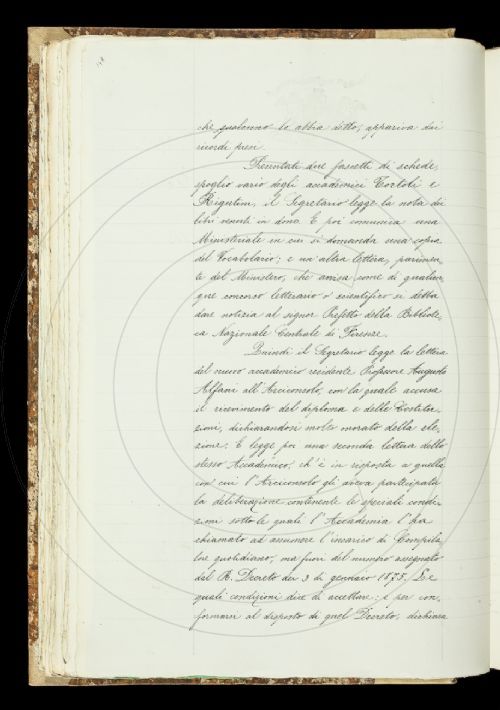 che qualcuno lo abbia detto, appariva dai
ricordi presi.
Presentati due fascetti di schede,
spoglio vario degli accademici Tortoli e
Rigutini, il Segretario legge la nota dei
libri venuti in dono. E poi comunica una
Ministeriale in cui si domanda una copia
del Vocabolario; e un'altra lettera, parimen=
te del Ministero, che avvisa come di qualun=
que concorso letterario o scientifico si debba
dare notizia al signor Prefetto della Bibliote=
ca Nazionale Centrale di Firenze.
Quindi il Segretario legge la lettera
del nuovo accademico residente Professore Augusto
Alfani all'Arciconsolo, con la quale accusa
il ricevimento del diploma e delle Costitu=
zioni, dichiarandosi molto onorato della ele=
zione. E legge poi una seconda lettera dello
stesso Accademico, ch'è in risposta a quella
con cui l'Arciconsolo gli aveva partecipata
la deliberazione contenente le speciali condi=
zioni sotto le quali l'Accademia l'ha
chiamato ad assumere l'incarico di Compila=
tore quotidiano, ma fuori del numero assegnato
dal R. Decreto dei 3 di gennaio 1875. Le
quali condizioni dice di accettare: e per con=
formarsi al disposto di quel Decreto, dichiara